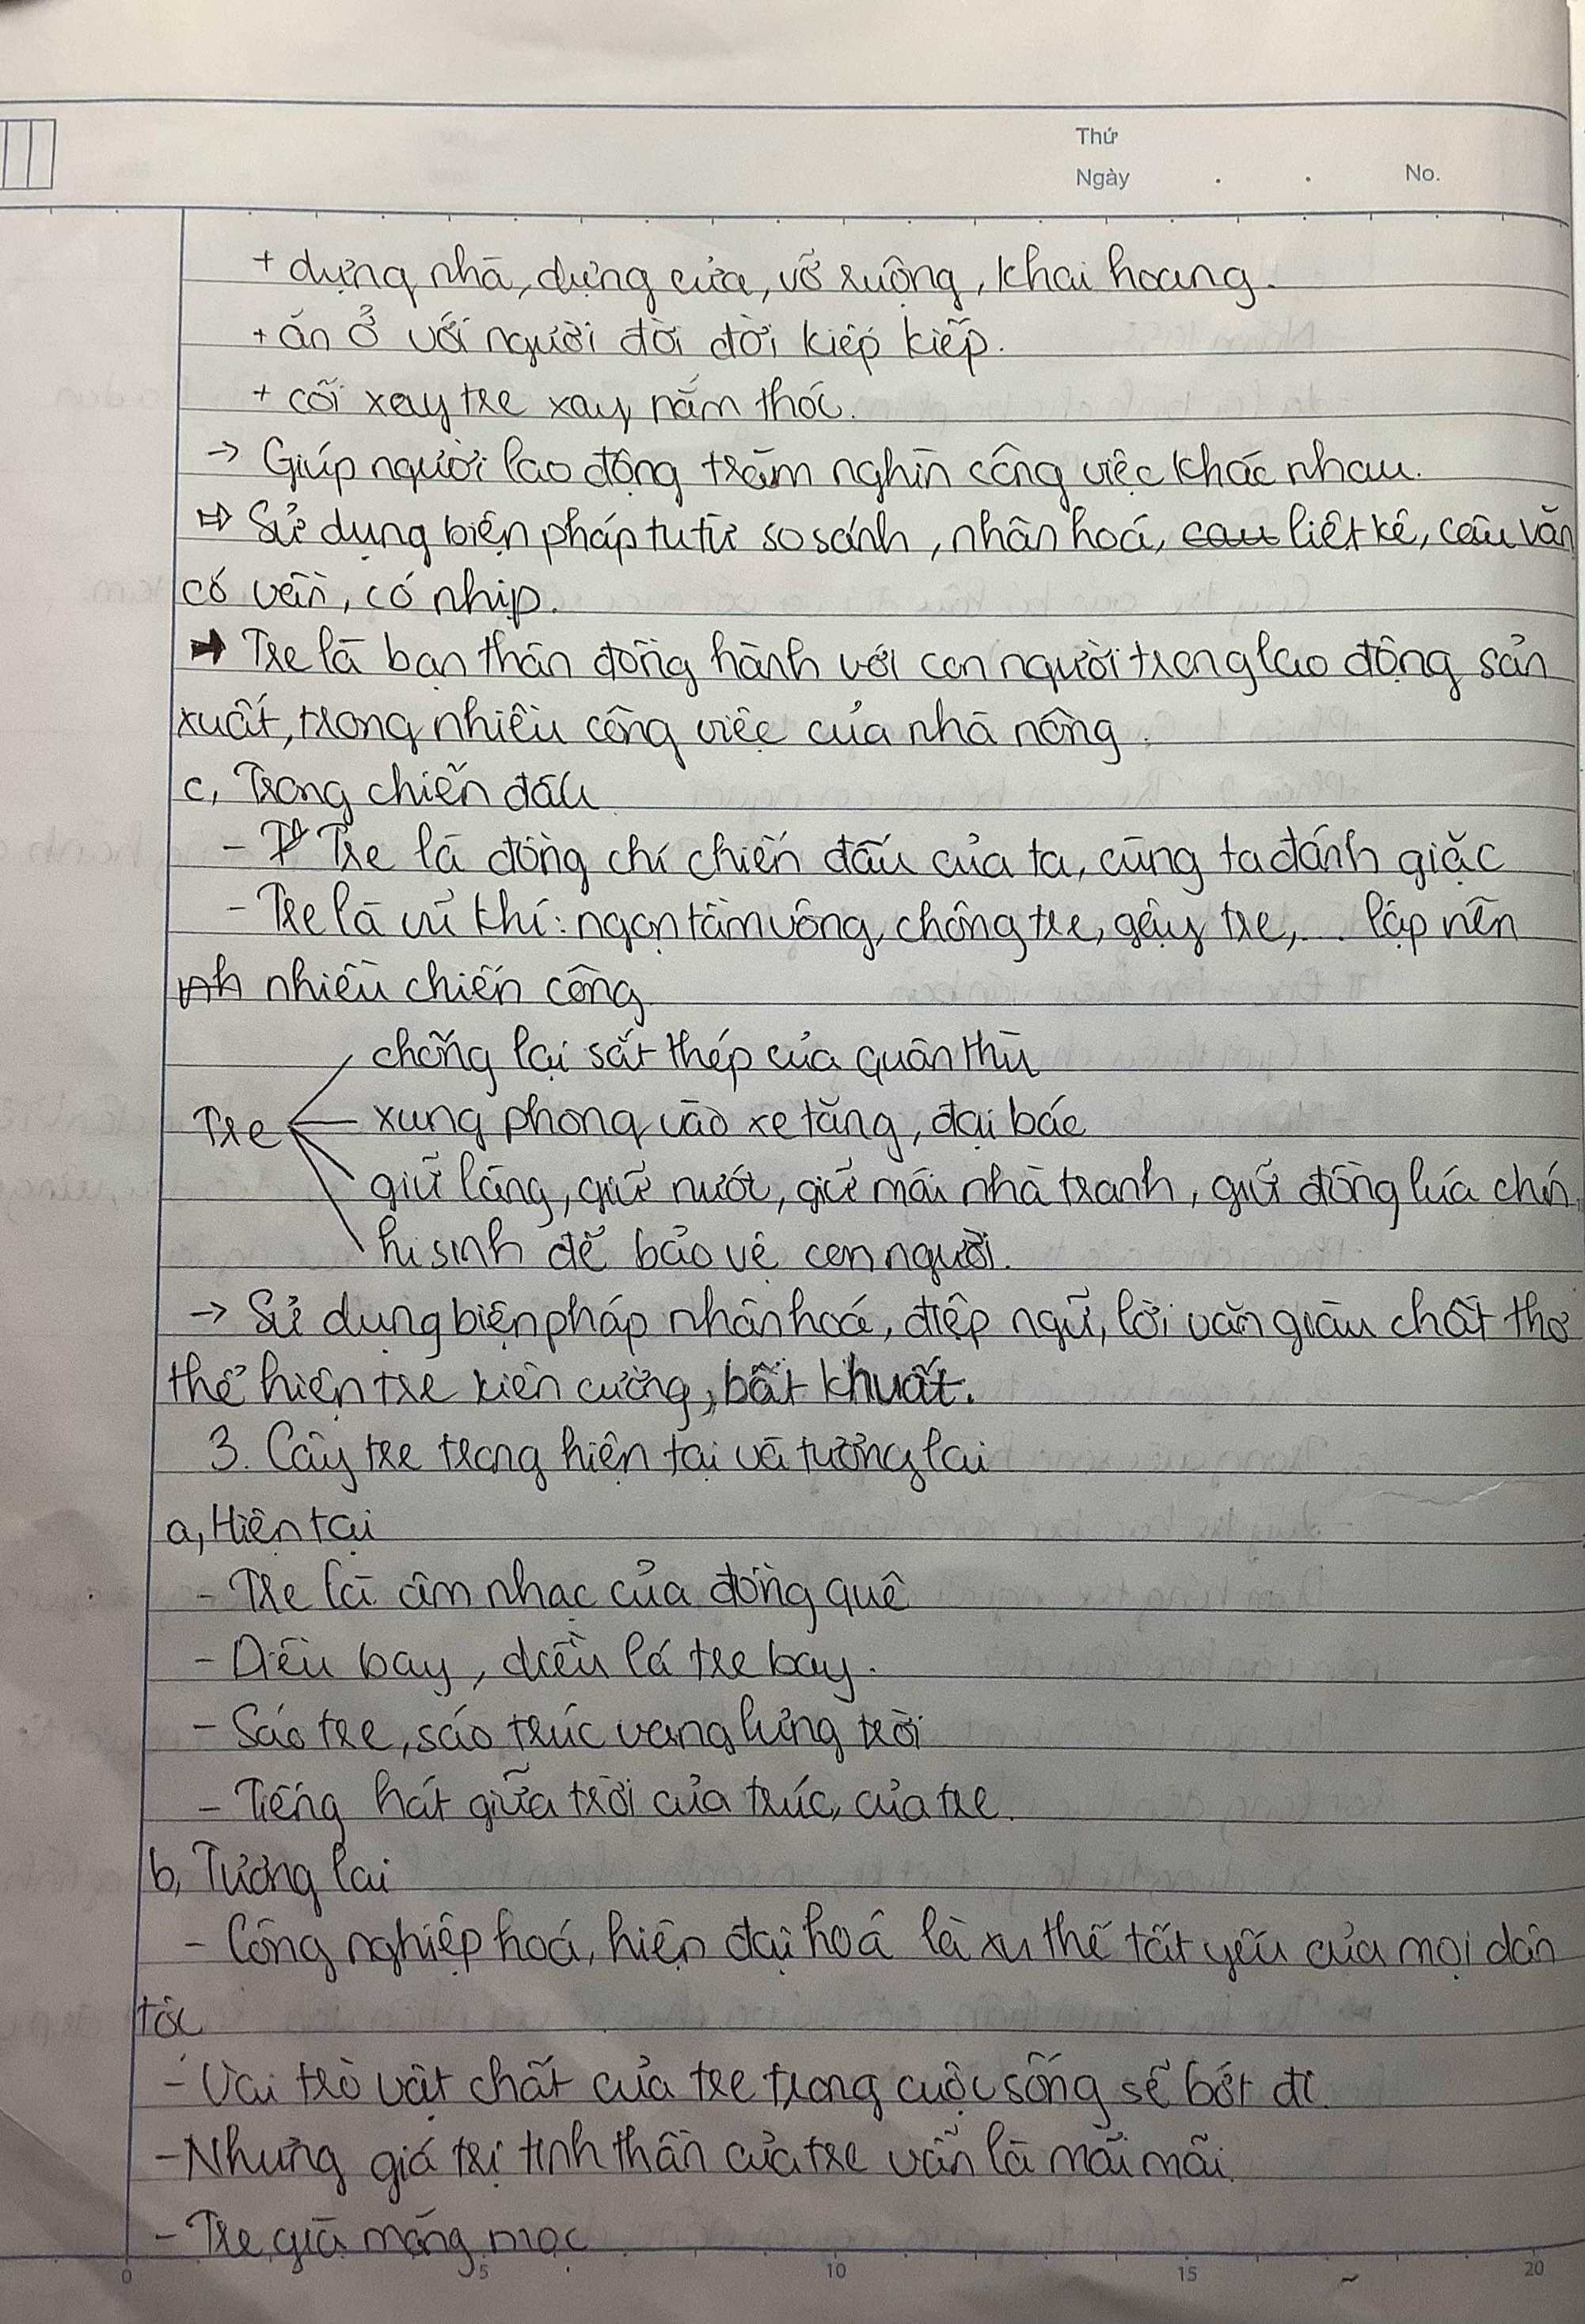 Thứ
Ngày . . No.
+ dựng nhà, dựng cửa, vỡ ruộng, khai hoang.
+ ăn ở với người đời đời kiếp kiếp.
+ cối xay tre xay nắm thóc.
→ Giúp người lao động trăm nghìn công việc khác nhau.
⇨ Sử dụng biện pháp tu từ so sánh, nhân hoá, liệt kê, câu văn
có vần, có nhịp.
➡ Tre là bạn thân đồng hành với con người trong lao động sản
xuất, trong nhiều công việc của nhà nông.
c, Trong chiến đấu
- Tre là đồng chí chiến đấu của ta, cùng ta đánh giặc
- Tre là vũ khí: ngọn tầm vông, chông tre, gậy tre,... lập nên
nhiều chiến công
chống lại sắt thép của quân thù
Tre xung phong vào xe tăng, đại bác
giữ làng, giữ nước, giữ mái nhà tranh, giữ đồng lúa chín
hi sinh để bảo vệ con người.
→ Sử dụng biện pháp nhân hoá, điệp ngữ, lời văn giàu chất thơ
thể hiện tre kiên cường, bất khuất.
3. Cây tre trong hiện tại và tương lai
a, Hiện tại
- Tre là âm nhạc của đồng quê
- Diều bay, diều lá tre bay.
- Sáo tre, sáo trúc vang lưng trời
- Tiếng hát giữa trời của trúc, của tre.
b, Tương lai
- Công nghiệp hoá, hiện đại hoá là xu thế tất yếu của mọi dân
tộc
- Vai trò vật chất của tre trong cuộc sống sẽ bớt đi.
- Nhưng giá trị tinh thần của tre vẫn là mãi mãi.
- Tre già măng mọc
0 5 10 15 20